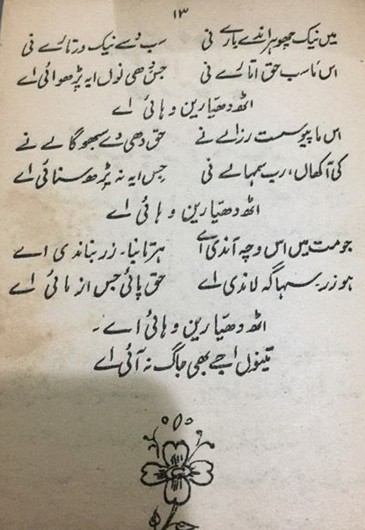 ۱۳
میں نیک چوہراندے یارے نی سب دے نیک ورتارے نی
اس ماسب حق اتارے نی جس دھی نوں ایہ پڑھوائی اے
اٹھ دھیا رین وہائی اے
اس ماپیو سمت رزاے نے حق دھی دے سبھو گالے نے
کی آکھاں، رب سمہالے نی جس ایہ نہ پڑھ سنائی اے
اٹھ دھیا رین وہائی اے
جومت میں اس وچہ آندی اے ہرتانیا۔ زر بناندی اے
ہو زر سہاگہ لاندی اے حق پائی جس از مائی اے
اٹھ دھیا رین وہائی اے۔
تینوں اجے بھی جاگ نہ آئی اے